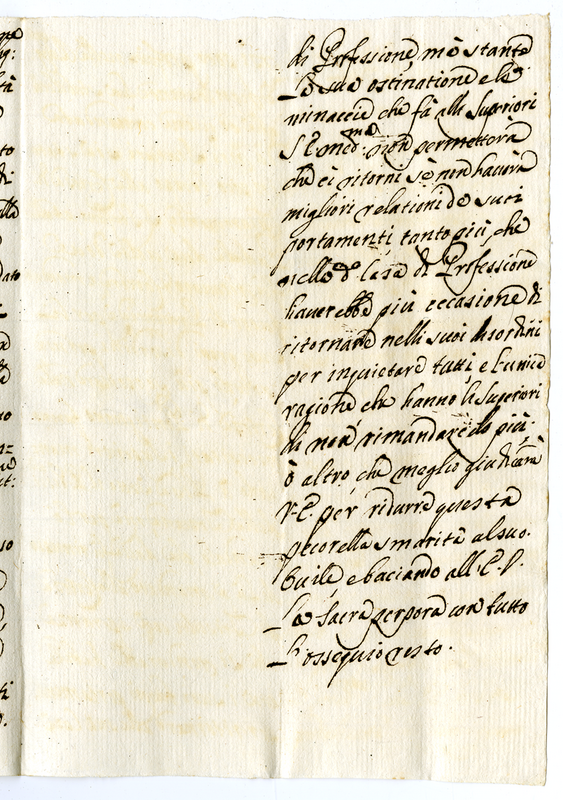 di Professione, mà stante
La sua ostinatione e le
minaccie che fà alli Superiori
S. E. med.ma non permetterà
che ei ritorni sè non haverà
migliori relationi de suoi
portamenti tanto più, che
nella d.a Casa di Professione
haverebbe più occasione di
ritornare nelli suoi disordini
per inquietare tutti, e l'unica
ragione che hanno li Superiori
di non rimandarcelo più
ò altro, che meglio giudicarà
V. E. per ridurre questa
pecorella smarita al suo
Ovile e baciando all' E. V.
La Sacra porpora con tutto
L'ossequio resto.